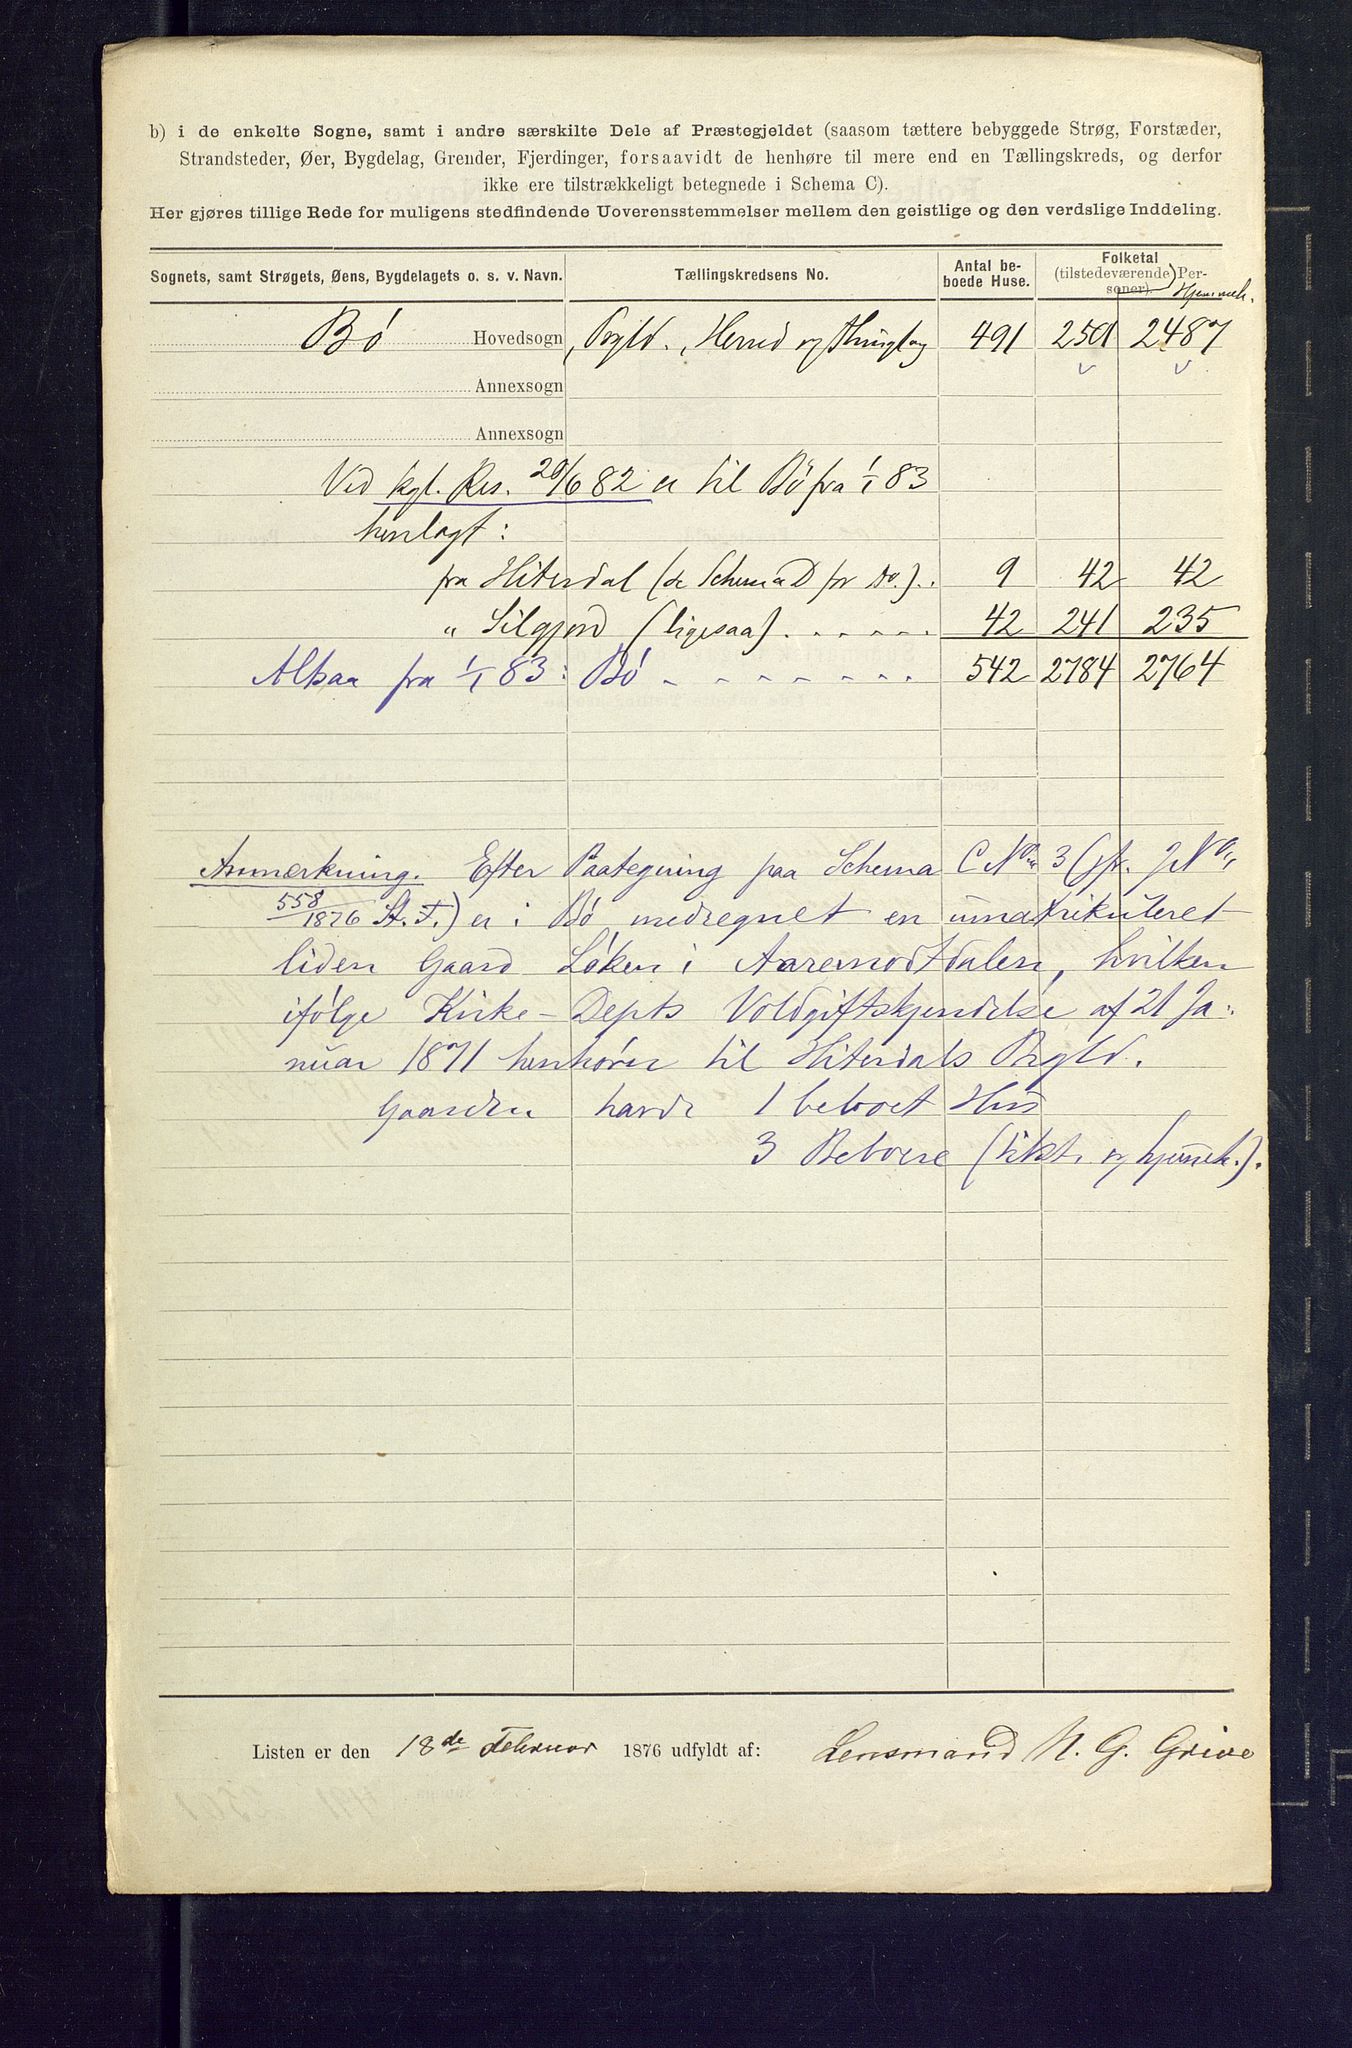 b) i de enkelte Sogne, samt i andre særskilte Dele af Præstegjeldet (saasom tættere bebyggede Strøg, Forstæder,
Strandsteder, Øer, Bygdelag, Grender, Fjerdinger, forsaavidt de henhøre til mere end en Tællingskreds, og derfor
ikke ere tilstrækkeligt betegnede i Schema C).
Her gjøres tillige Rede for muligens stedfindende Uoverensstemmelser mellem den geistlige og den verdslige Inddeling.
Sognets, samt Strøgets, Øens, Bygdelagets o. s. v. Navn. Tællingskredsens No. Antal beboede Huse. Folketal (tilstedeværende Personer). Hjemmeh.
Bø Hovedsogn, Prgld., Herred og Thinglag 491 2501 2487
Annexsogn
Annexsogn
Ved kgl. Res. 20/6 82 er til Bø fra 1/1 83
henlagt:
fra Hiterdal (se Schema D for Do.). 9 42 42
" Silgjord (ligesaa) . . . . . 42 241 235
Altsaa fra 1/1 83: Bø - - - - - - - - 542 2784 2764
Anmærkning. Efter Paategning paa Schema C No 3 (jfr. J No
558/1876 St. T.) er i Bø medregnet en umatrikuleret
liden Gaard Løken i Aaremodtdalen, hvilken
ifølge Kirke-Depts Voldgiftskjendelse af 21 Ja-
nuar 1871 henhører til Hiterdals Prgld.
Gaarden havde 1 beboet Hus
3 Beboere (tilst. og hjemmeh.).
Listen er den 18de Februar 1876 udfyldt af: Lensmand N. G. Grive